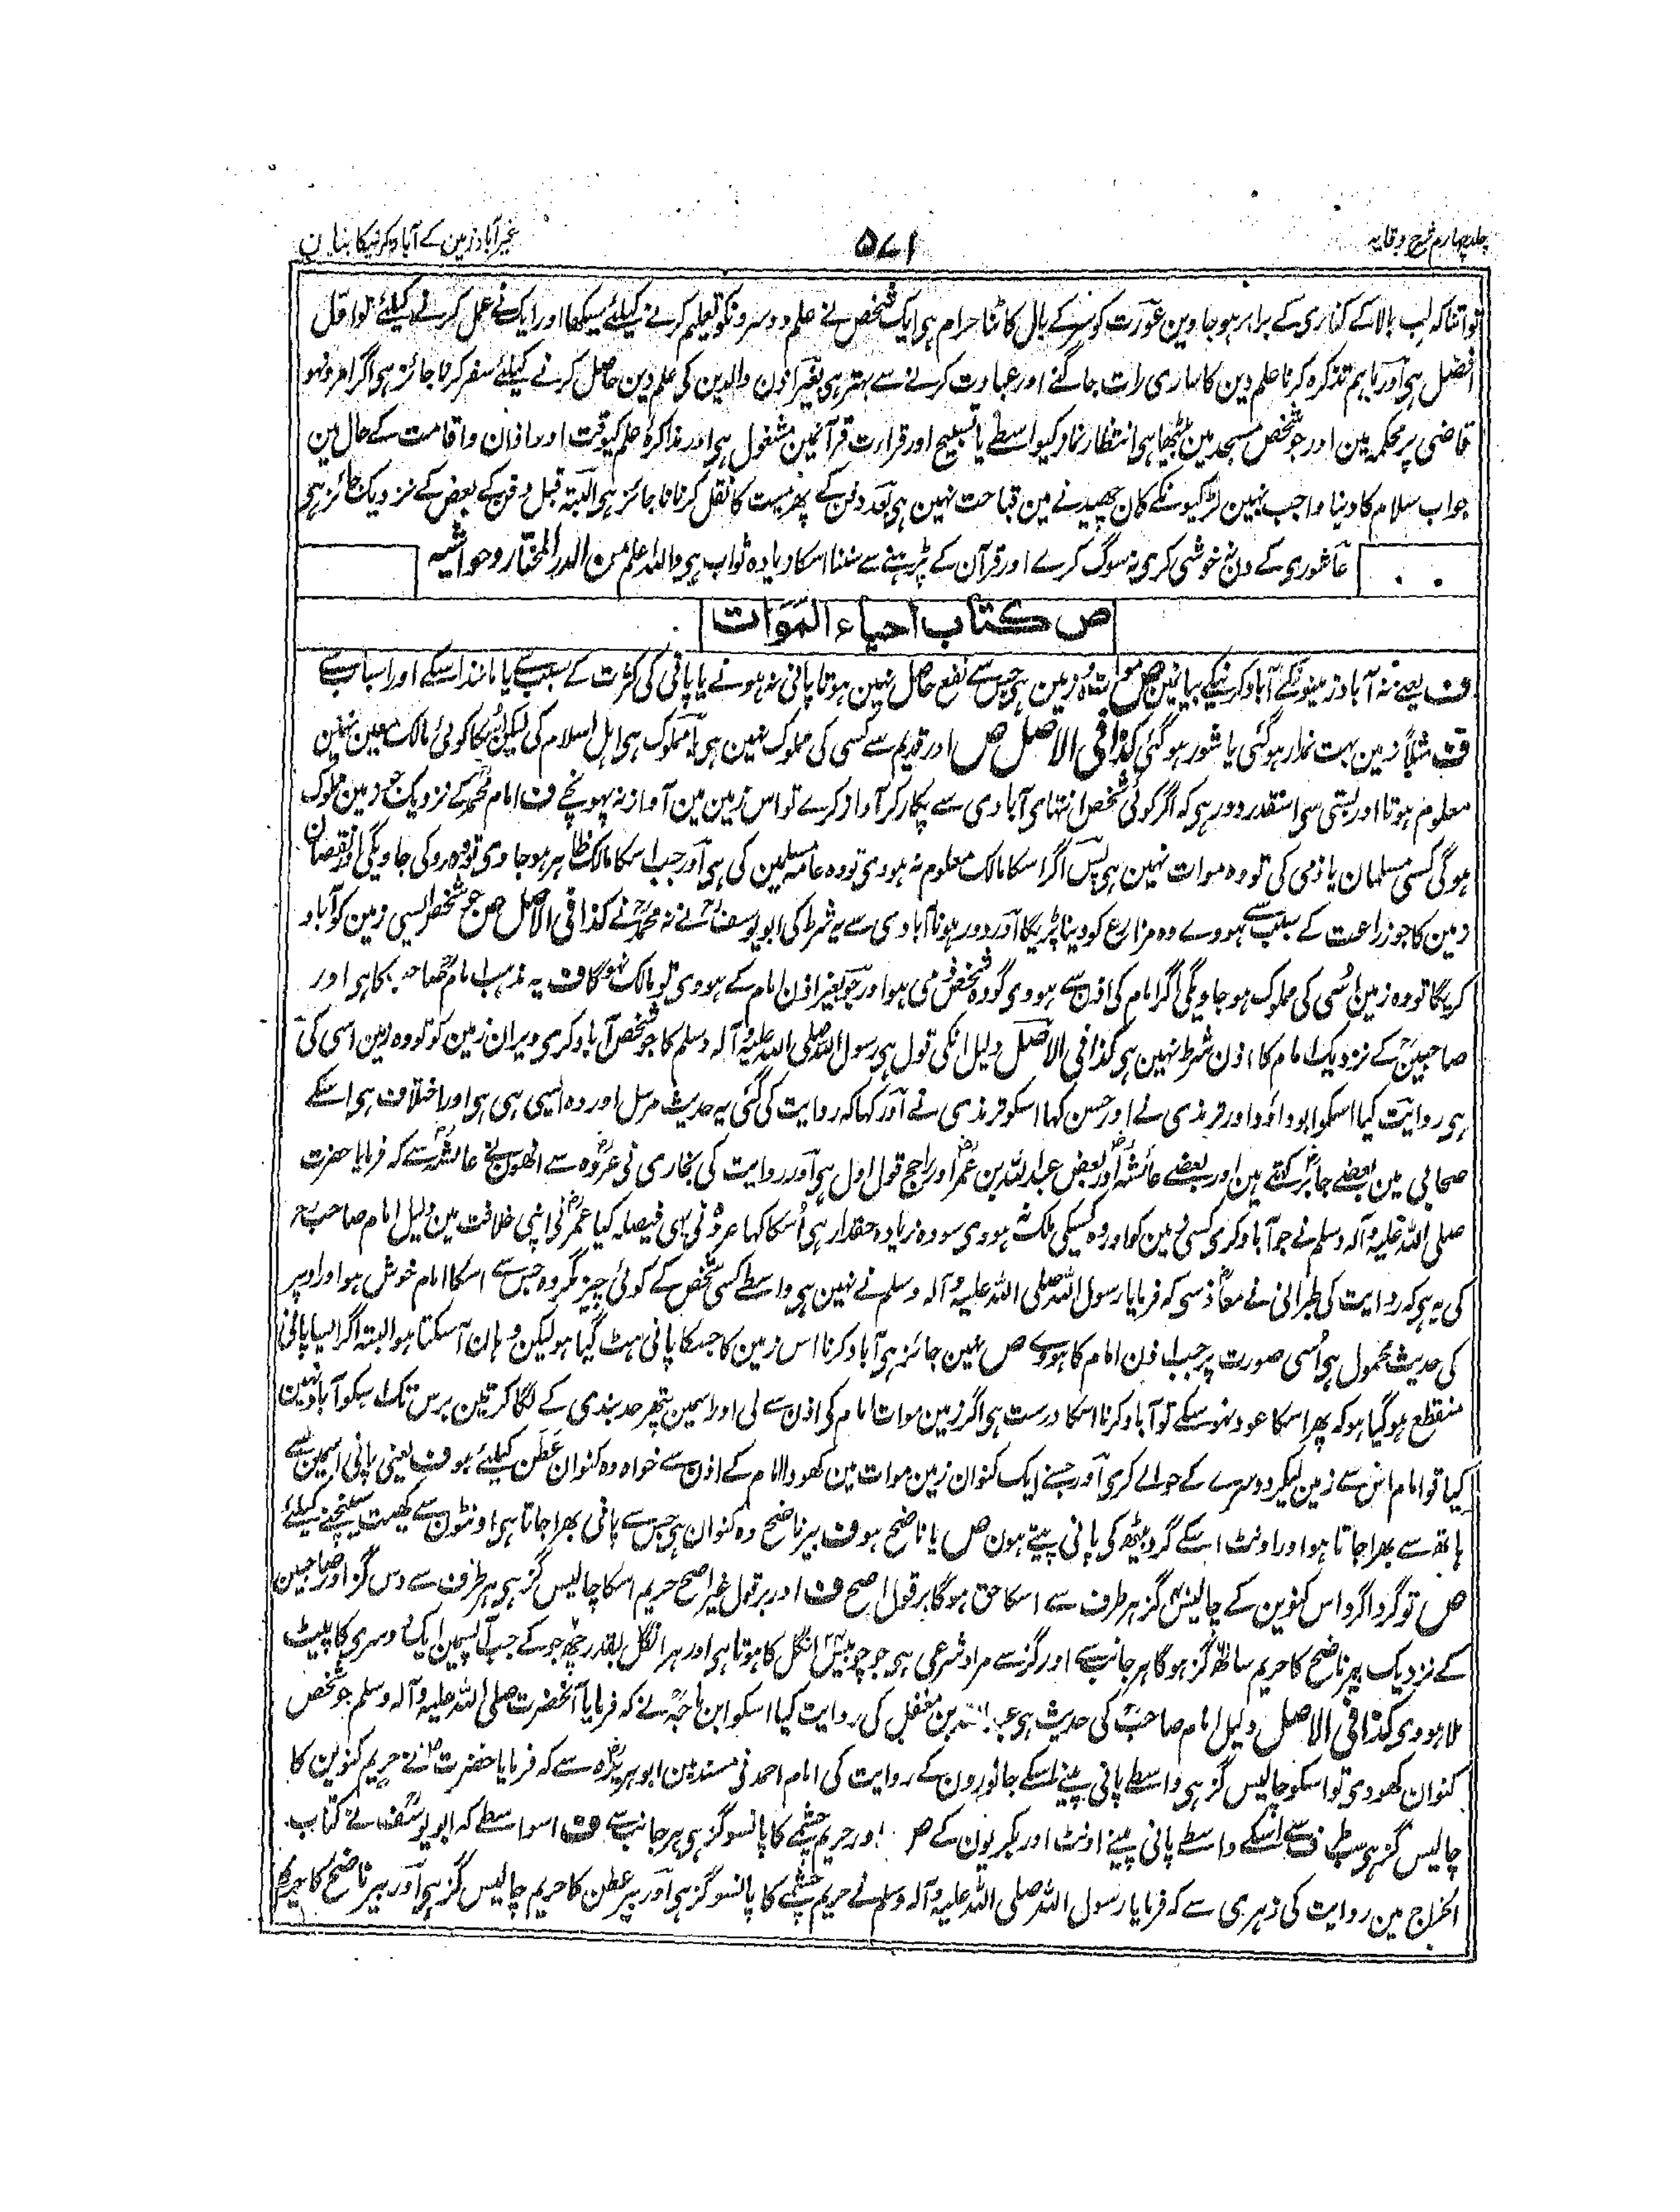 جلد چہارم شرح وقایہ
۵۷۱
غیر آباد زمین کے آباد کرنیکا بیان
تو اتنا کہ لب بالا کے کناری کے برابر ہو جاوین عورت کو سر کے بال کاٹنا حرام ہی ایک شخص نے علم دوسرونکو تعلیم کرنے کیلئے سیکھا اور ایک نے عمل کرنے کیلئے تو اول
افضل ہی اور باہم تذکرہ کرنا علم دین کا ساری رات جاگنے اور عبادت کرنے سے بہتر ہی بغیر اذن والدین کی علم دین حاصل کرنے کیلئے سفر کرنا جائز ہی اگر امرد نہو
قاضی پر محکمہ مین اور جو شخص مسجد مین بیٹھا ہی انتظار نماز کیواسطے یا تسبیح اور قراءت قرآنمین مشغول ہی اور مذاکرۂ علم کیوقت اور اذان و اقامت کے حال مین
جواب سلام کا دینا واجب نہین لڑکیونکے کان چھیدنے مین قباحت نہین ہی بعد دفن کے پھر میت کا نقل کرنا نا جائز ہی البتہ قبل دفن کے بعض کے نزدیک جائز ہی
عاشوری کے دن نہ خوشی کری نہ سوگ کرے اور قرآن کے پڑہنے سے سننا اسکا زیادہ ثواب ہی واللہ اعلم من الدر المختار وحواشیہ
ص کتاب احیاء الموات
ف یعنے نہ آباد زمینونکے آباد کرنیکے بیانمین ص موات وہ زمین ہی جس سے نفع حاصل نہین ہوتا پانی نہ ہونے یا پانی کی کثرت کے سبب سے یا مانند اسکے اور اسباب سے
ف مثلاً زمین بہت نمدار ہو گئی یا شور ہو گئی کذا فی الاصل ص اور قدیم سے کسی کی مملوک نہین ہی یا مملوک ہی اہل اسلام کی لیکن اُسکا کوئی مالک معین نہین
معلوم ہوتا اور بستی سی اسقدر دور ہی کہ اگر کوئی شخص انتہای آبادی سے پکار کر آواز کرے تو اس زمین مین آواز نہ پہونچے ف امام محمد کے نزدیک جو زمین مملوک
ہو گی کسی مسلمان یا ذمی کی تو وہ موات نہین ہی پس اگر اسکا مالک معلوم نہ ہووی تو وہ عامہ مسلمین کی ہی اور جب اسکا مالک ظاہر ہو جاوی تو وہ رو کی جاویگی اور نقصان
زمین کا جو زراعت کے سبب سے ہووے وہ مزارع کو دینا پڑیگا اور دور ہونا آبادی سے یہ شرط کی ابو یوسف نے نہ محمد نے کذا فی الاصل ص جو شخص ایسی زمین کو آباد
کریگا تو وہ زمین اُسی کی مملوک ہو جاویگی اگر امام کی اذن سے ہووی گو وہ شخص ذمی ہو اور جو بغیر اذن امام کے ہووی تو مالک نہو گا ف یہ مذہب امام صاحب کا ہی اور
صاحبین کے نزدیک امام کا اذن شرط نہین ہی کذا فی الاصل دلیل انکی قول ہی رسول اللہ صلی اللہ علیہ وآلہ وسلم کا جو شخص آباد کری ویران زمین کو تو وہ زمین اسی کی
ہی روایت کیا اسکو ابو داؤد اور ترمذی نے اور حسن کہا اسکو ترمذی نے اور کہا کہ روایت کی گئی یہ حدیث مرسل اور وہ ایسی ہی ہی اور اختلاف ہی اسکے
صحابی مین بعضے جابر کہتے ہین اور بعضے عائشہ اور بعض عبد اللہ بن عمر اور راجح قول اول ہی اور روایت کی بخاری نی عروہ سے انھون نے عائشہ سے کہ فرمایا حضرت
صلی اللہ علیہ وآلہ وسلم نے جو آباد کری کسی زمین کو اور وہ کسیکی ملک نہ ہووی سو وہ زیادہ حقدار ہی اُسکا کہا عروہ نی یہی فیصلہ کیا عمر نی اپنی خلافت مین دلیل امام صاحب
کی یہ ہی کہ روایت کی طبرانی نے معاذ سی کہ فرمایا رسول اللہ صلی اللہ علیہ وآلہ وسلم نے نہین ہی واسطے کسی شخص کے کوئی چیز مگر وہ جس سے اسکا امام خوش ہو اور اوپر
کی حدیث محمول ہی اُسی صورت پر جب اذن امام کا ہووے ص نہین جائز ہی آباد کرنا اس زمین کا جسکا پانی ہٹ گیا ہو لیکن وہان آ سکتا ہو البتہ اگر ایسا پانی
منقطع ہو گیا ہو کہ پھر اسکا عود نہو سکے تو آباد کرنا اسکا درست ہی اگر زمین موات امام کی اذن سے لی اور اسمین پتھر حد بندی کے لگا کر تین برس تک اسکو آباد نہین
کیا تو امام اس سے زمین لیکر دوسرے کے حوالے کری اور جسنے ایک کنوان زمین موات مین کھودا امام کے اذن سے خواہ وہ کنوان عطن کیلئے ہو ف یعنی پانی اسمین سے
ہاتھ سے بھرا جاتا ہو اور اونٹ اسکے گرد بیٹھ کی پانی پیتے ہون ص یا ناضح ہو ف بیر ناضح وہ کنوان ہی جس سے پانی بھرا جاتا ہی اونٹون سے کھیت سینچنے کیلئے
ص تو گردا گرد اس کنوین کے چالیس گز ہر طرف سے اسکا حق ہو گا بر قول اصح ف اور بر قول غیر اصح حریم اسکا چالیس گز ہی ہر طرف سے دس گز اور صاحبین
کے نزدیک بیر ناضح کا حریم ساٹھ گز ہو گا ہر جانب سے اور گز سے مراد شرعی ہی جو چوبیس انگل کا ہوتا ہی اور ہر انگل بقدر چھ جو کے جب آپسمین ایک دوسری کا پیٹ
ملا ہووی کذا فی الاصل دلیل امام صاحب کی حدیث ہی بن مغفل کی روایت کیا اسکو ابن ماجہ نے کہ فرمایا آنحضرت صلی اللہ علیہ وآلہ وسلم جو شخص
کنوان کھودی تو اسکو چالیس گز ہی واسطے پانی پینے اسکے جانورون کے روایت کی امام احمد نی مسند مین ابو ہریرہ سے کہ فرمایا حضرت نے حریم کنوین کا
چالیس گز ہی سب طرف سے اسکے واسطے پانی پینے اونٹ اور بکریون کے ص اور حریم چشمے کا پانسو گز ہی ہر جانب سے ف اسواسطے کہ ابو یوسف نے کتاب
الخراج مین روایت کی زہری سے کہ فرمایا رسول اللہ صلی اللہ علیہ وآلہ وسلم نے حریم چشمے کا پانسو گز ہی اور بیر عطن کا حریم چالیس گز ہی اور بیر ناضح کا حریم